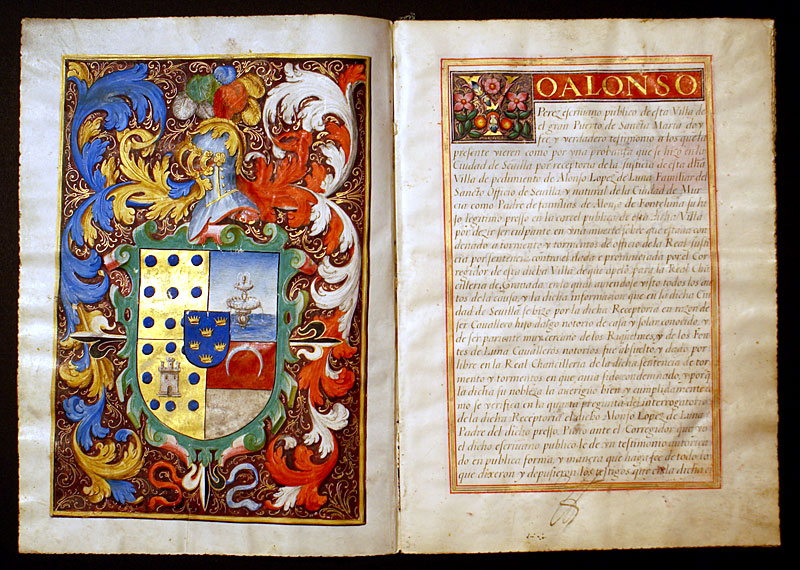 YO ALONSO
Perez escriuano publico de esta Villa de
el gran Puerto de Sancta Maria doy
fee y verdadero testimonio a los que la
presente vieren como por vna probança que se hizo en la
Ciudad de Seuilla por receptoria de la Justicia de esta dha
Villa de pedimiento de Alonso Lopez de Luna Familiar del
Sancto Officio de Seuilla y natural de la Ciudad de Mur
cia como Padre de familias de Alonso de Fonteluna su hi
jo legitimo preso en la carcel publica de esta dicha Villa
por dezir ser culpante en vna muerte sobre que estaua con
denado a tormento y tormentos de officio de la Real Justi
cia por sentencia contra el dada y pronunciada por el Cor
regidor de esta dicha Villa de que apeló para la Real Chã
cilleria de Granada en la qual auiendose visto todos los au
tos de la causa, y la dicha informacion que en la dicha Ciu
dad de Seuilla se hizo por la dicha Receptoria en razon de
ser Cauallero hijo dalgo notorio de casa y solar conocido, y
de ser pariente muy cercano de los Riquelmes, y de los Fon
tes de Luna Caualleros notorios fue absuelto y dado por
libre en la Real Chancilleria de la dicha sentencia de tor
mento y tormentos en que auia sido condenado, y porq̃
la dicha su nobleza la aueriguó bien y cumplidamente co
mo se verifica en la quinta pregunta del interrogatorio
de la dicha Receptoria el dicho Alonso Lopez de Luna
Padre del dicho preso Pidio ante el Corregidor que yo
el dicho escriuano publico le de vn testimonio autoriza
do en publica forma, y manera que haga fee de todo lo
que dixeron y depusieron los testigos que en la dicha ci